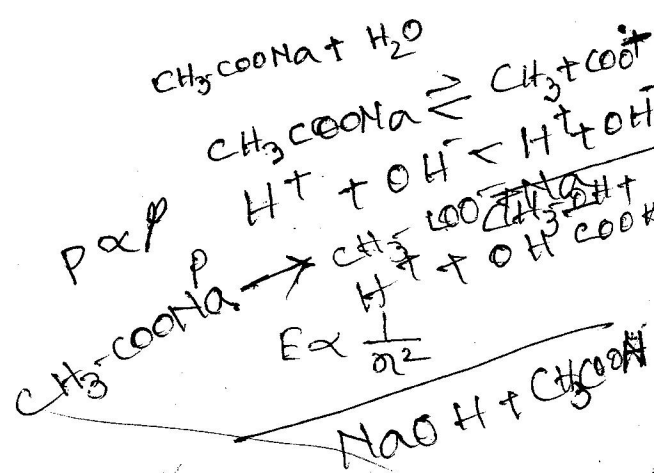 CH₃COONa + H₂O
CH₃COONa ⇌ CH₃ + COO⁺
H⁺ + OH⁻ < H⁺ + OH⁻
P ∝ P
P
CH₃-COONa → CH₃-COO⁻ + Na
CH₃-OH +
H⁺ + OH COOH
E ∝ 1/n²
NaOH + CH₃COOH